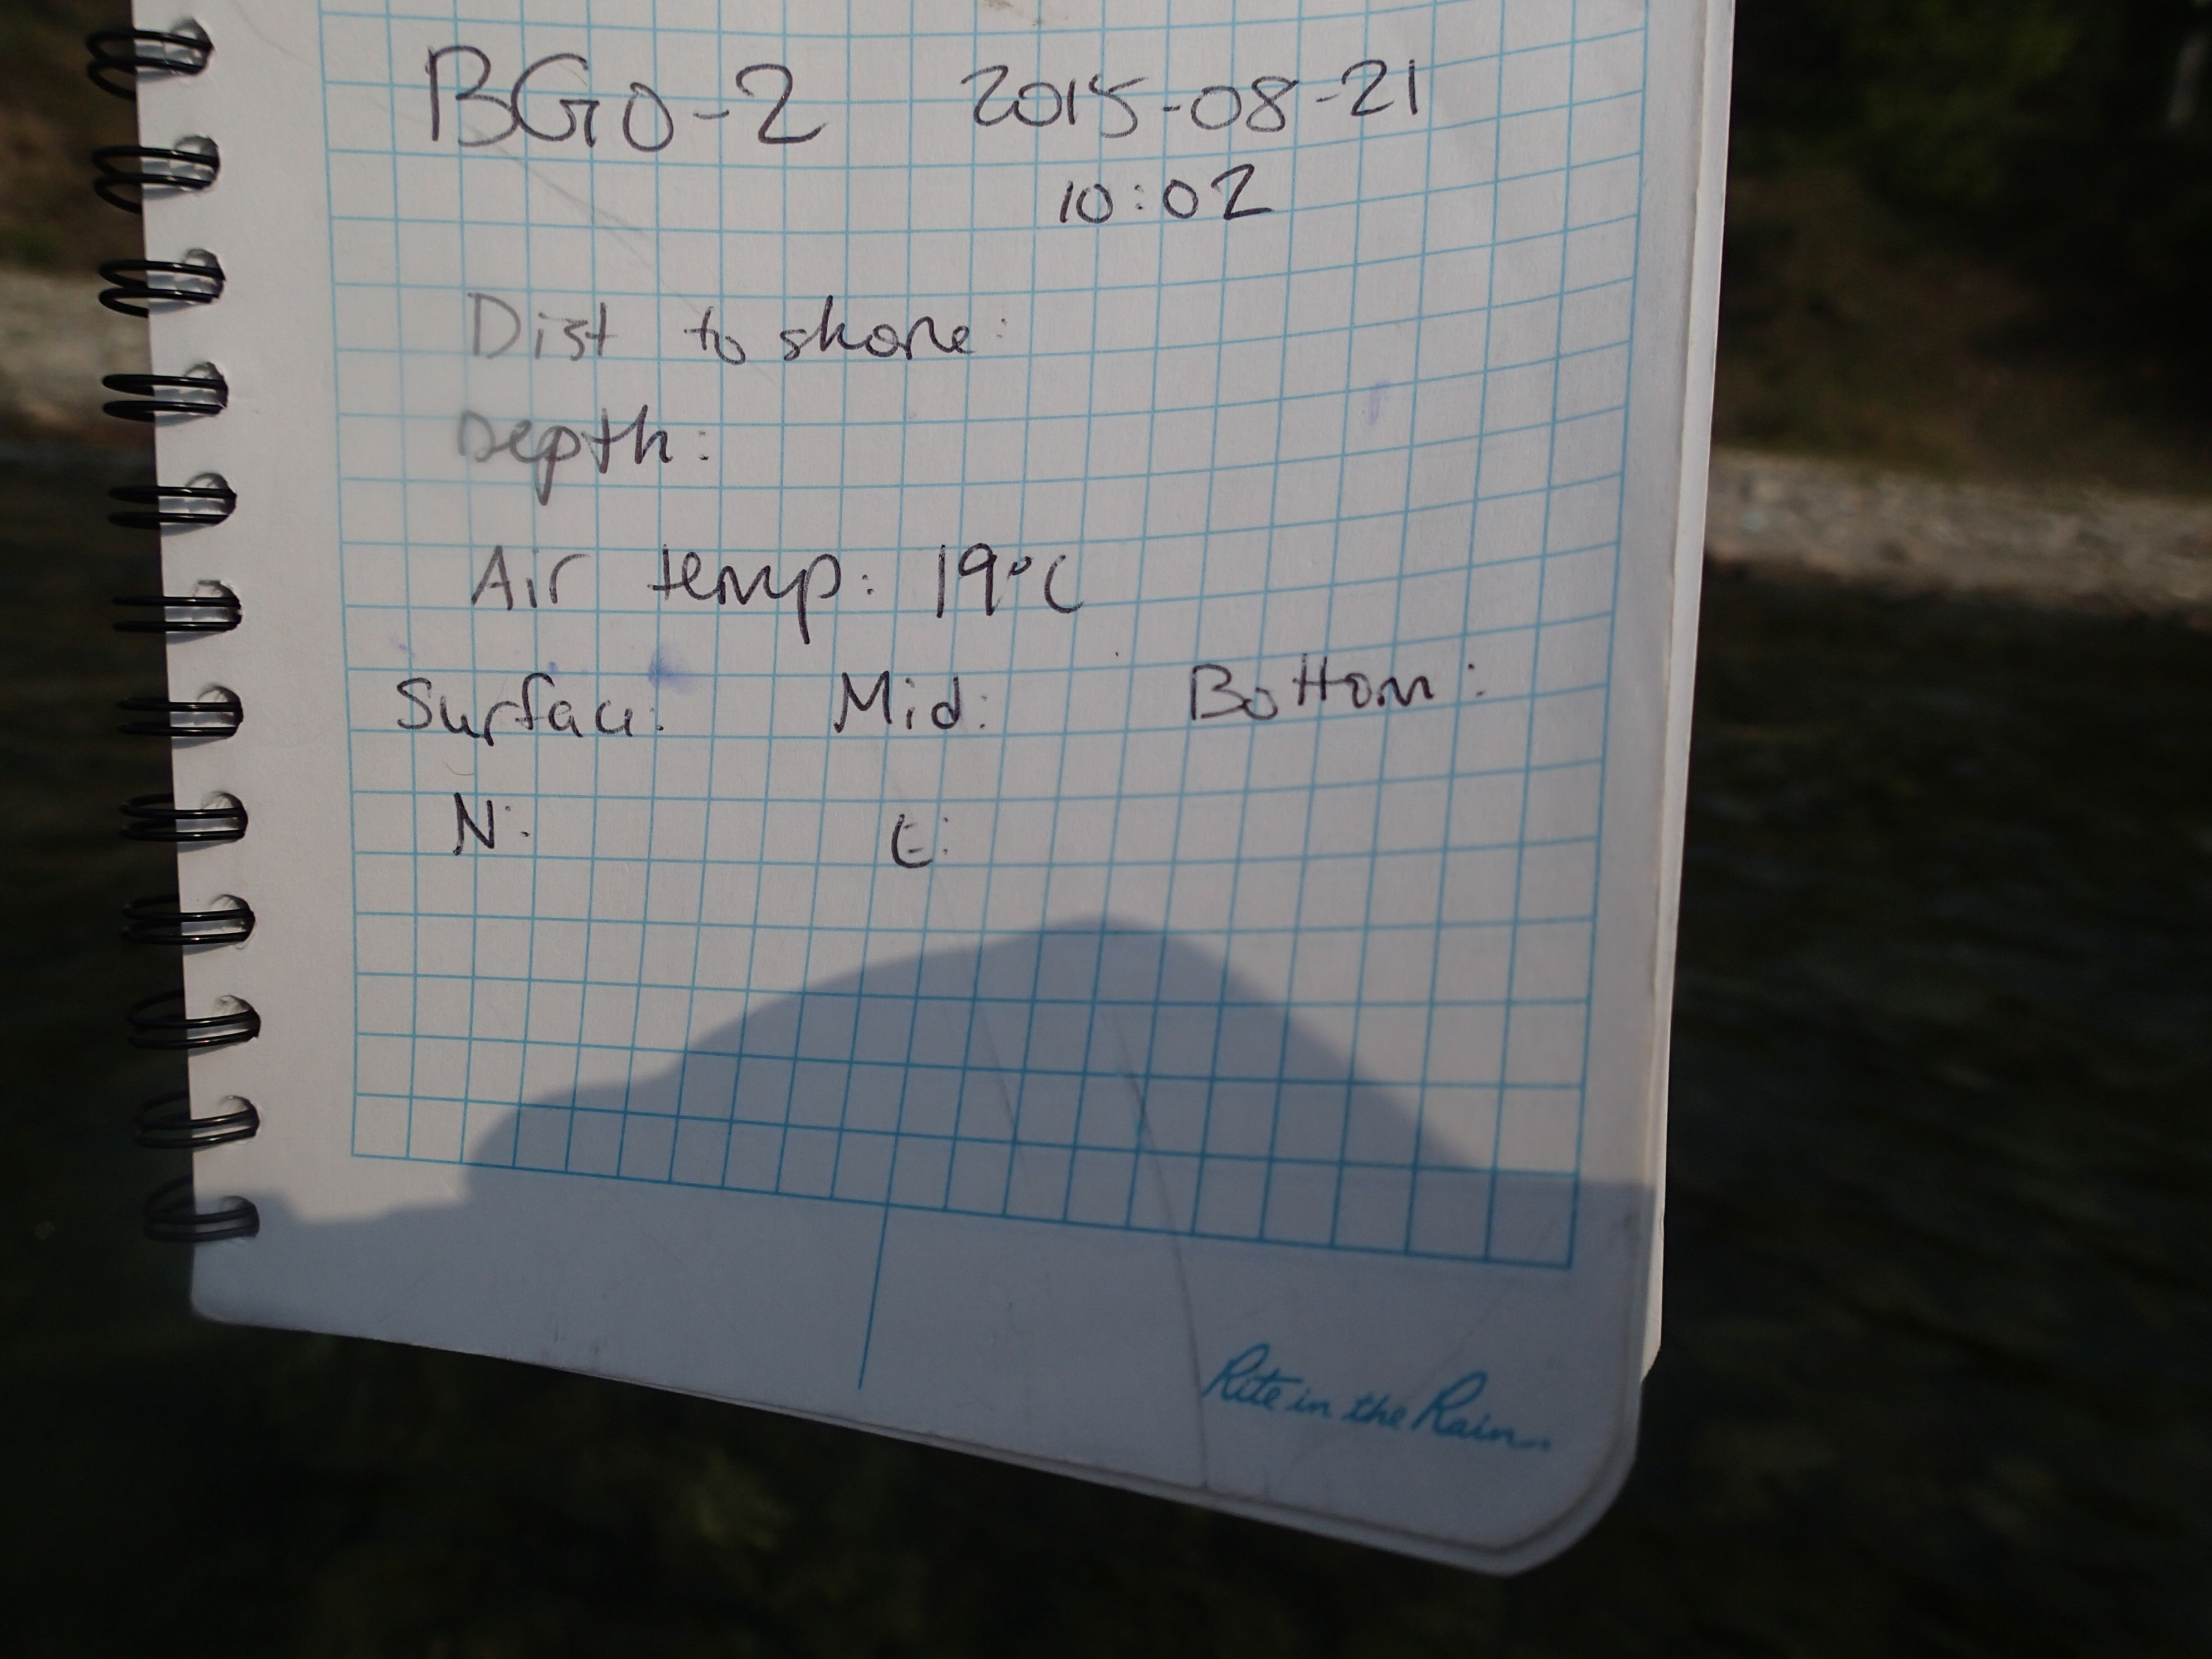 BGO-2 2015-08-21
10:02
Dist to shore:
Depth:
Air temp: 19°C
Surface: Mid: Bottom:
N: E:
Rite in the Rain.